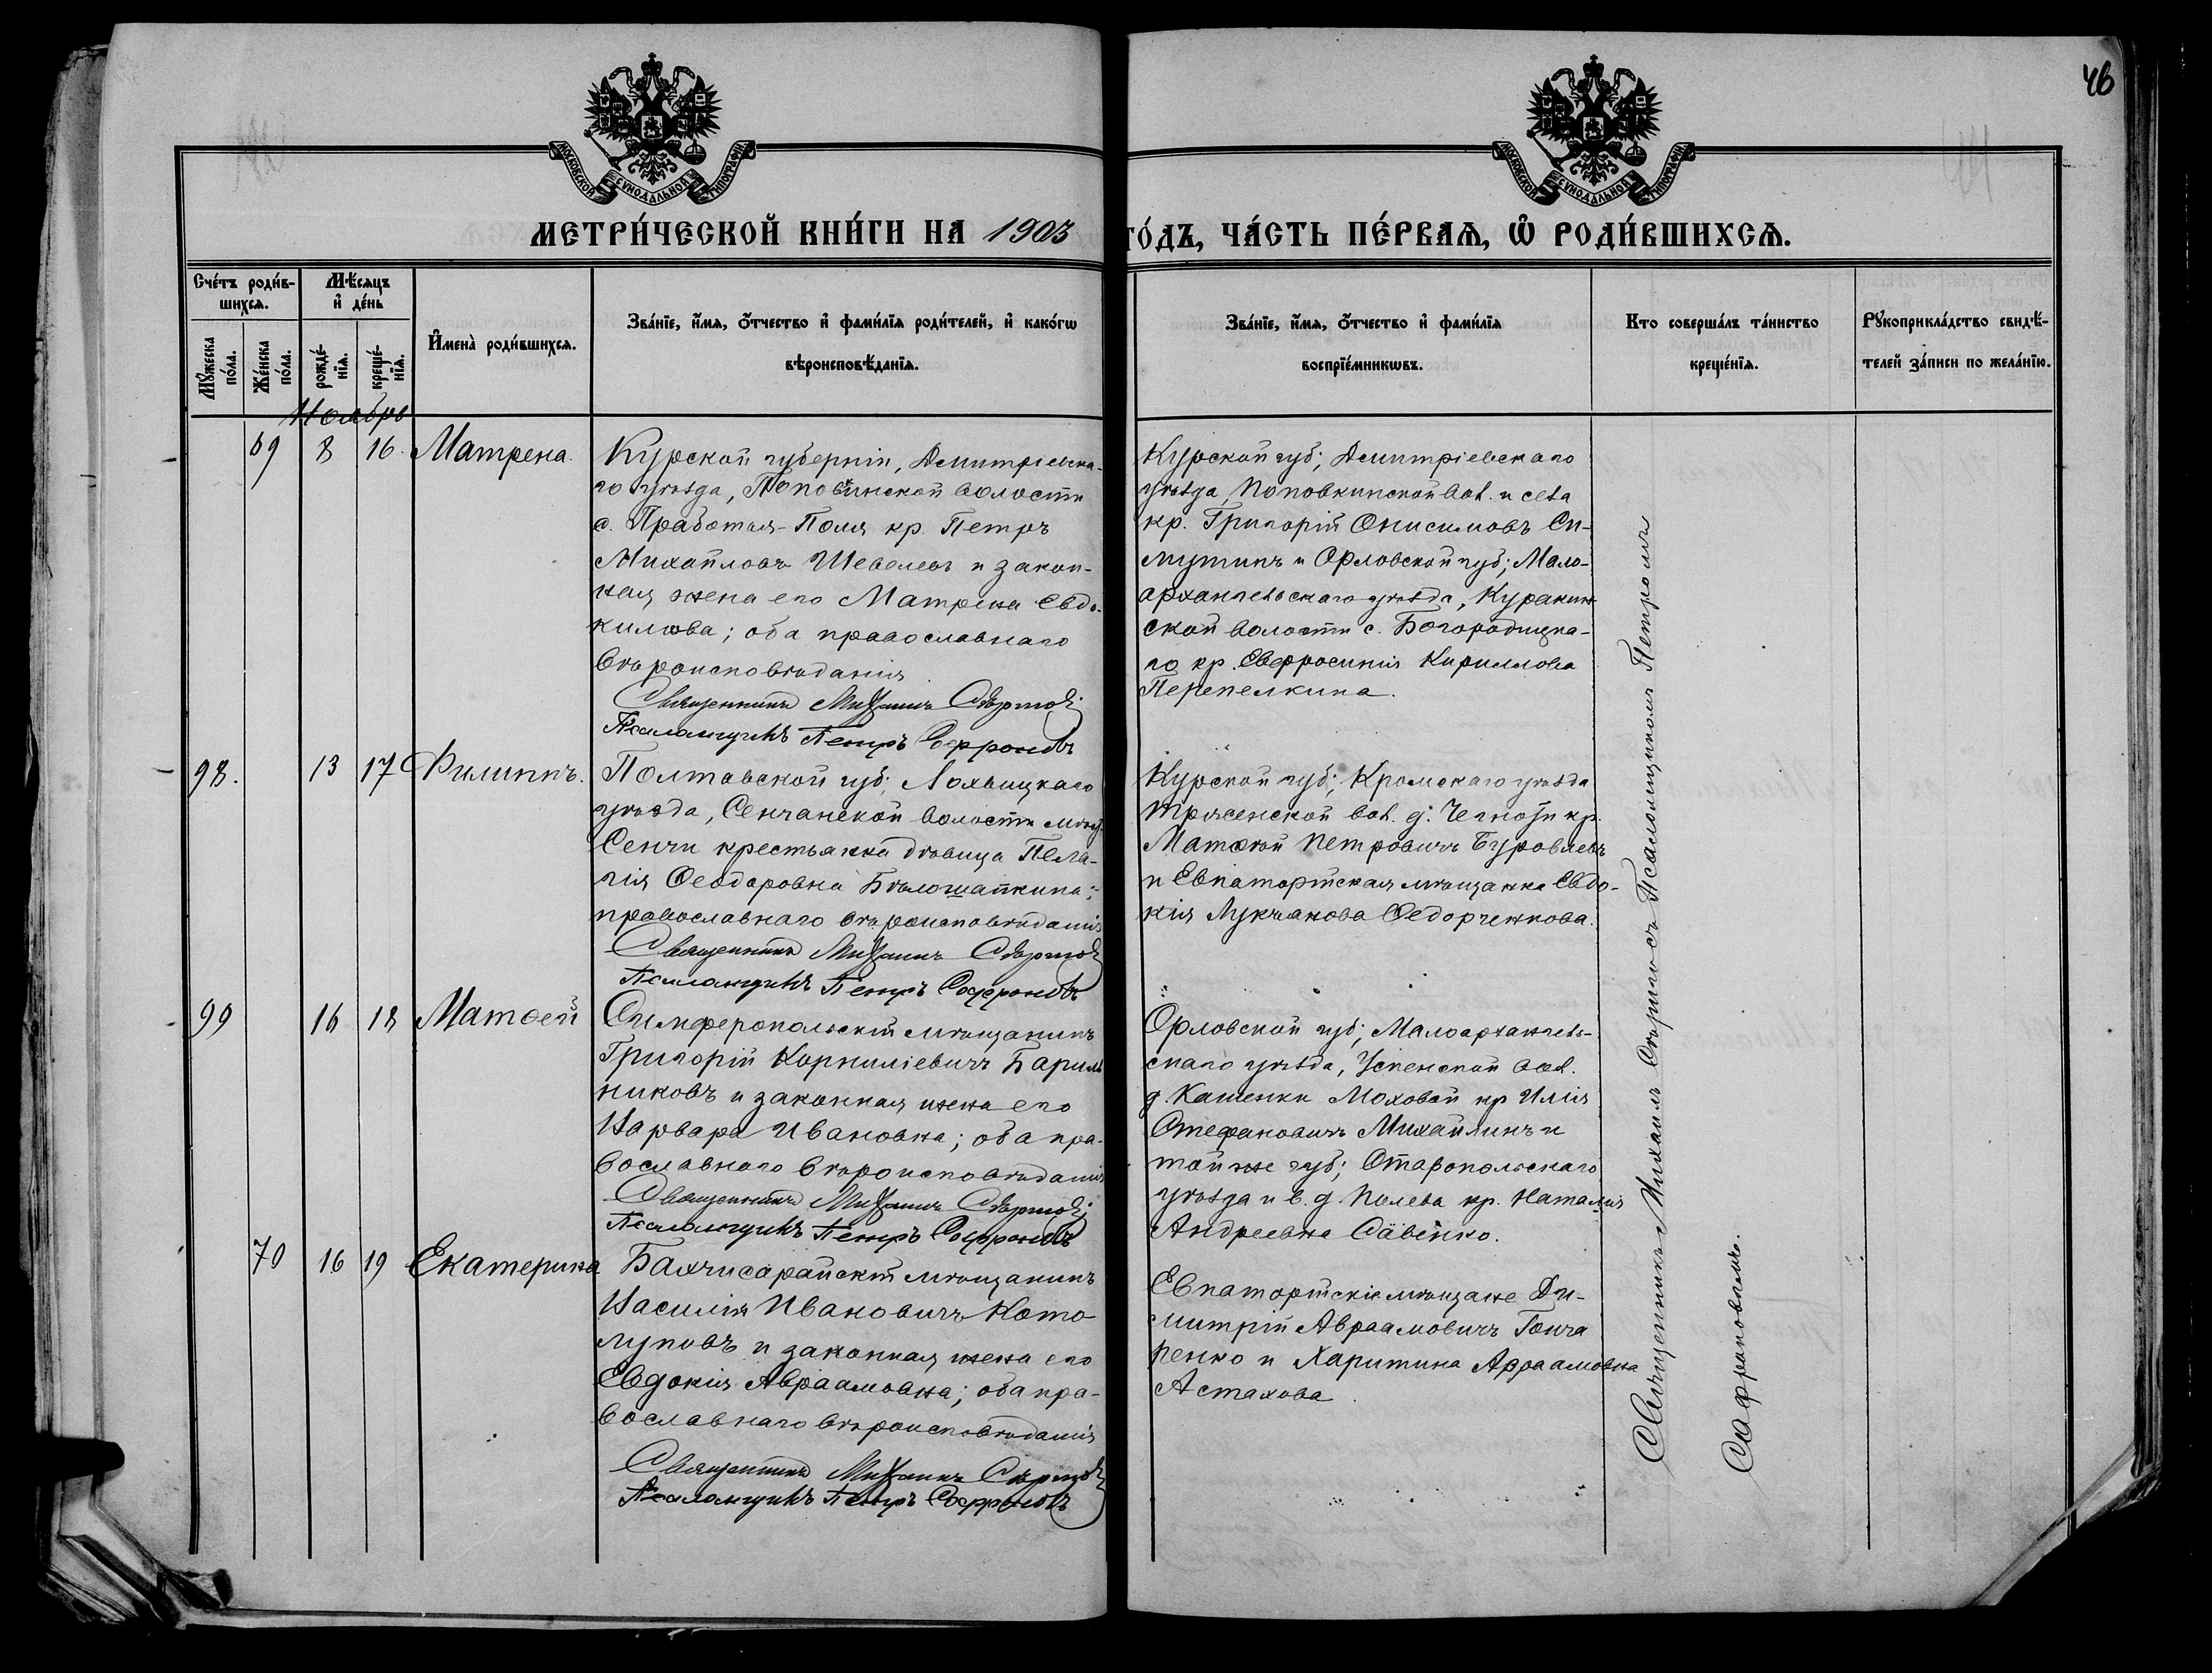 46
МОСКОВСКОЙ СѴНОДАЛЬНОЙ ТИПОГРАФІИ
МОСКОВСКОЙ СѴНОДАЛЬНОЙ ТИПОГРАФІИ
МЕТРИ́ЧЕСКОЙ КНИ́ГИ НА 1903 ГО́ДЪ, ЧА́СТЬ ПЕ́РВАѦ, Ѡ҆ РОДИ́ВШИХСѦ.
Сче́тъ роди́в-
шихсѧ.
Мꙋ́жеска по́ла.
Же́нска по́ла.
Мѣ́сѧцъ
и҆ де́нь
рожде́-
нїѧ.
креще́-
нїѧ.
И҆мена̀ роди́вшихсѧ.
Зва́нїе, и҆́мѧ, ѻ҆́тчество и҆ фами́лїѧ роди́телей, и҆ како́гѡ
вѣроисповѣ́данїѧ.
Зва́нїе, и҆́мѧ, ѻ҆́тчество и҆ фами́лїѧ
воспрїе́мникѡвъ.
Кто соверша́лъ та́инство
креще́нїѧ.
Рꙋкоприкла́дство свидѣ́-
телей за́писи по жела́нїю.
Ноябрь
69 8 16 Матрена.
Курской губерніи, Дмитріевска-
го уѣзда, Поповкинской волости
с. Поля кр. Петръ
Михайловъ Шевелевъ и закон-
ная жена его Матрена Евдо-
кимова; оба православнаго
вѣроисповѣданія.
Священникъ Михаилъ
Псаломщикъ Петръ Софроновъ
Курской губ; Дмитріевскаго
уѣзда, Поповкинской вол. и села
кр. Григорій Онисимовъ Си-
мутинъ и Орловской губ; Мало-
архангельскаго уѣзда, Куракин
ской волости с. Богородицка-
го кр. Евфросинія Кириллова
Перепелкина.
98. 13 17 Филиппъ.
Полтавской губ; Лохвицкаго
уѣзда, Сенчанской волости мѣст.
Сенчи крестьянка дѣвица Пела-
гія Ѳеодоровна Бѣлошапкина;
православнаго вѣроисповѣданія
Священникъ Михаилъ
Псаломщикъ Петръ Софроновъ
Курской губ; Кромскаго уѣзда
вол. д. кр.
Матѳей Петровичъ
и Евпаторійская мѣщанка Евдо-
кія Лукьянова Ѳедорченкова.
99 16 18 Матѳей
Симферопольскій мѣщанинъ
Григорій Корниліевичъ Бариль
никовъ и законная жена его
Варвара Ивановна; оба пра-
вославнаго вѣроисповѣданія
Священникъ Михаилъ
Псаломщикъ Петръ Софроновъ
Орловской губ; Малоархангель-
скаго уѣзда, Успенской вол.
д. Каменки Моховой кр Илія
Стефановичъ Михайлинъ и
той же губ; Старопольскаго
уѣзда и в. д. Полева кр. Наталія
Андреевна Савенко.
70 16 19 Екатерина
Бахчисарайскій мѣщанинъ
Василій Ивановичъ Кото-
луповъ и законная жена его
Евдокія Авраамовна; оба пра-
вославнаго вѣроисповѣданія
Священникъ Михаилъ
Псаломщикъ Петръ Софроновъ
Евпаторійскіе мѣщане Ди-
митрій Авраамовичъ Гонча
ренко и Харитина Авраамовна
Астахова.
Священникъ Михаилъ съ Псаломщикомъ Петромъ
Софроновымъ.